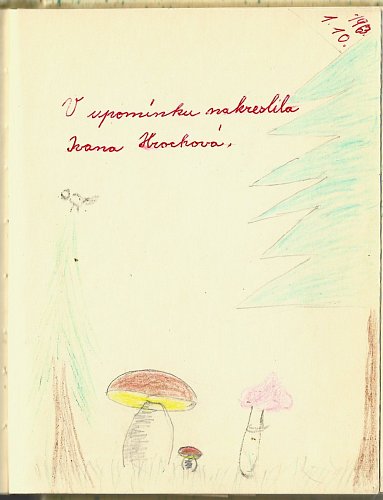 1. 10.
V upomínku nakreslila
Ivana Hrochová.